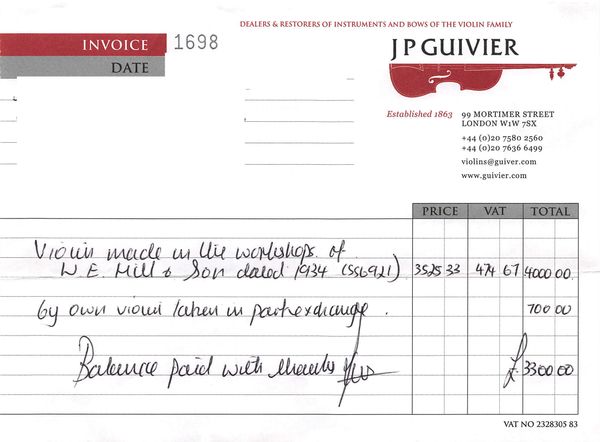 DEALERS & RESTORERS OF INSTRUMENTS AND BOWS OF THE VIOLIN FAMILY
INVOICE 1698
DATE
J P GUIVIER
Established 1863
99 MORTIMER STREET
LONDON W1W 7SX
+44 (0)20 7580 2560
+44 (0)20 7636 6499
violins@guiver.com
www.guivier.com
PRICE VAT TOTAL
Violin made in the workshops of
W E. Hill & Son dated 1934 (SS6921) 3525 33 474 67 4000 00.
by own violin taken in part exchange. 700 00
Balance paid with thanks £ 3300 00
VAT NO 2328305 83